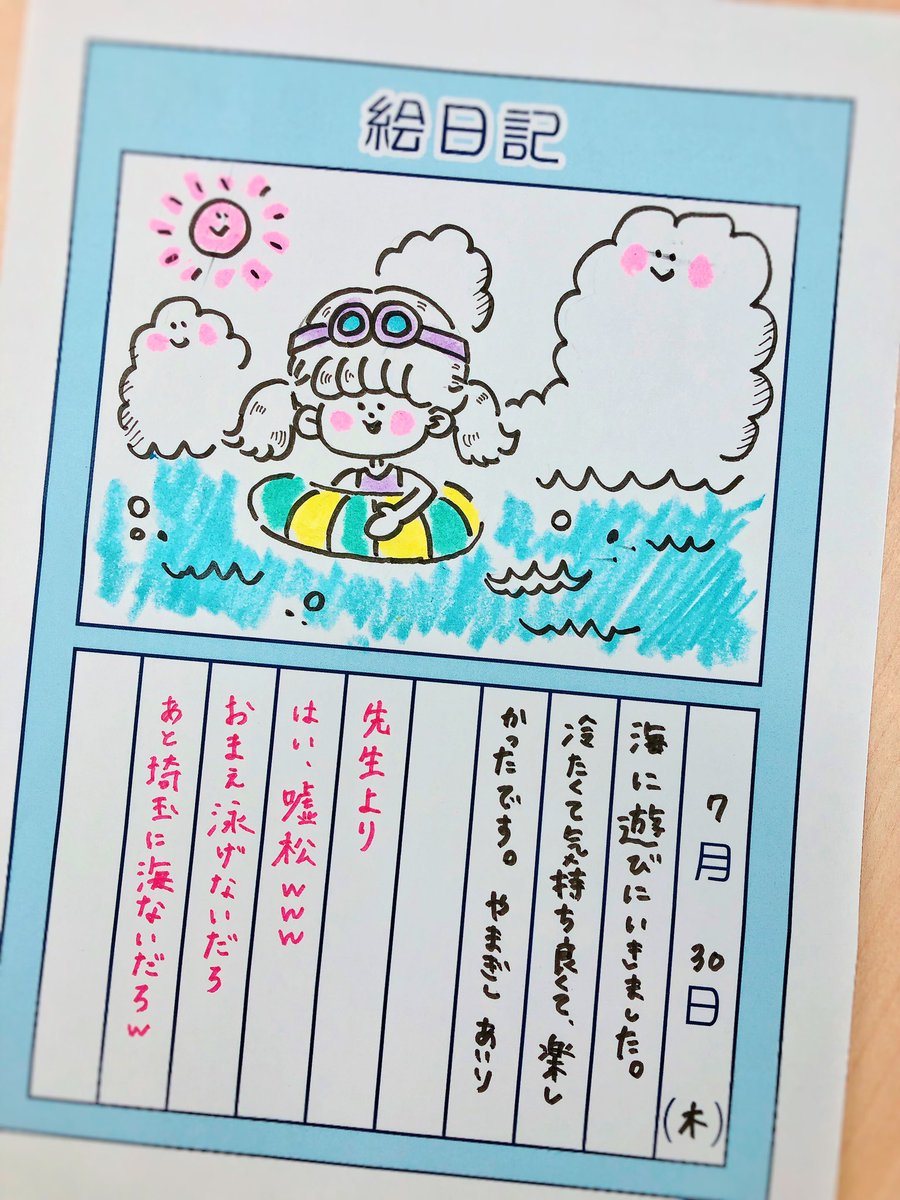 絵日記
7月30日(木)
海に遊びにいきました。
冷たくて気持ち良くて、楽し
かったです。 やまぎし あいり
先生より
はい、嘘松www
おまえ泳げないだろ
あと埼玉に海ないだろw